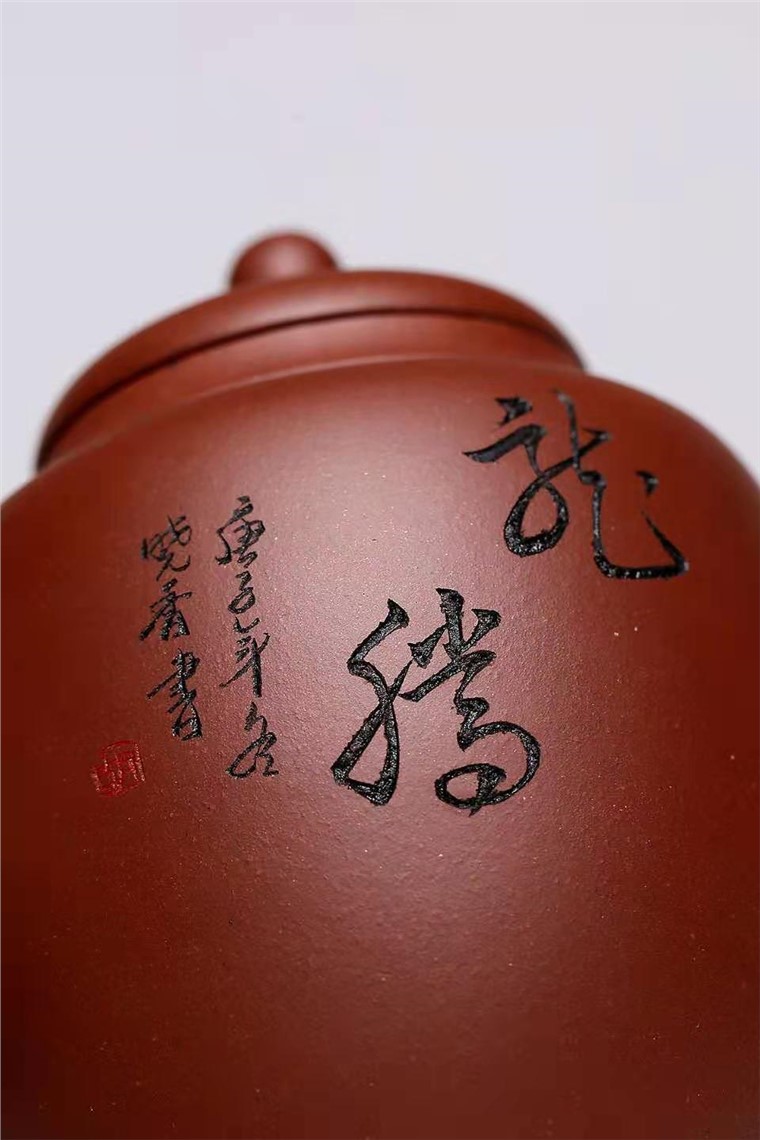 龍
騰
庚子年冬
曉香書